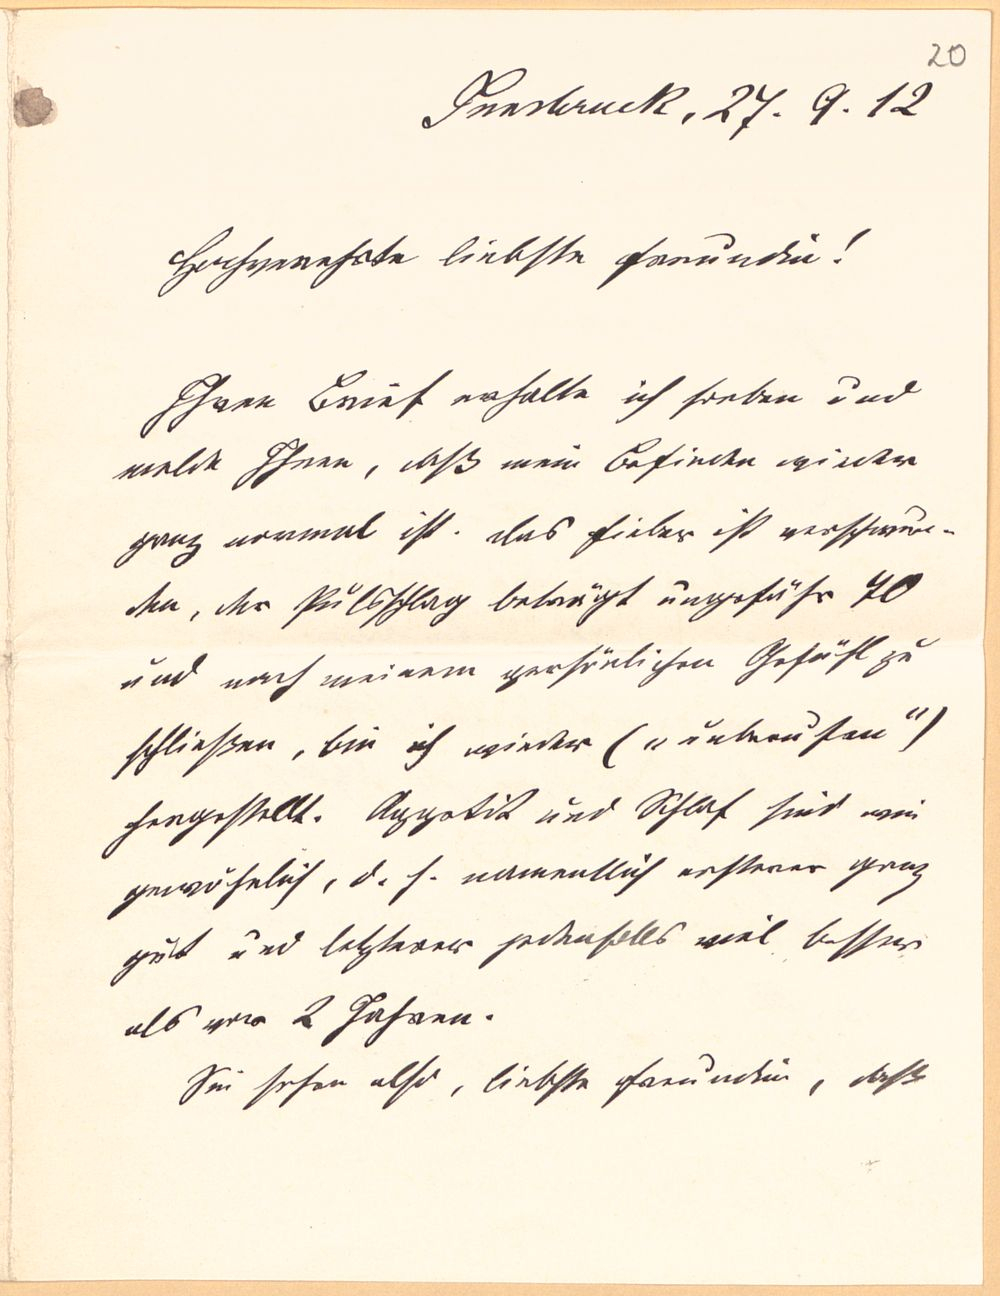 20
Innsbruck, 27. 9. 12
Hochverehrte liebste Freundin!
Ihren Brief erhalte ich soeben und
melde Ihnen, daß mein Befinden wieder
ganz normal ist. Das Fieber ist verschwun-
den, der Pulsschlag beträgt ungefähr 70
und nach meinem persönlichen Gefühl zu
schließen, bin ich wieder („unberufen“)
hergestellt. Appetit und Schlaf sind wie
gewöhnlich, d. h. namentlich ersterer ganz
gut und letzterer jedenfalls viel besser
als vor 2 Jahren.
Sie sehen also, liebste Freundin, daß